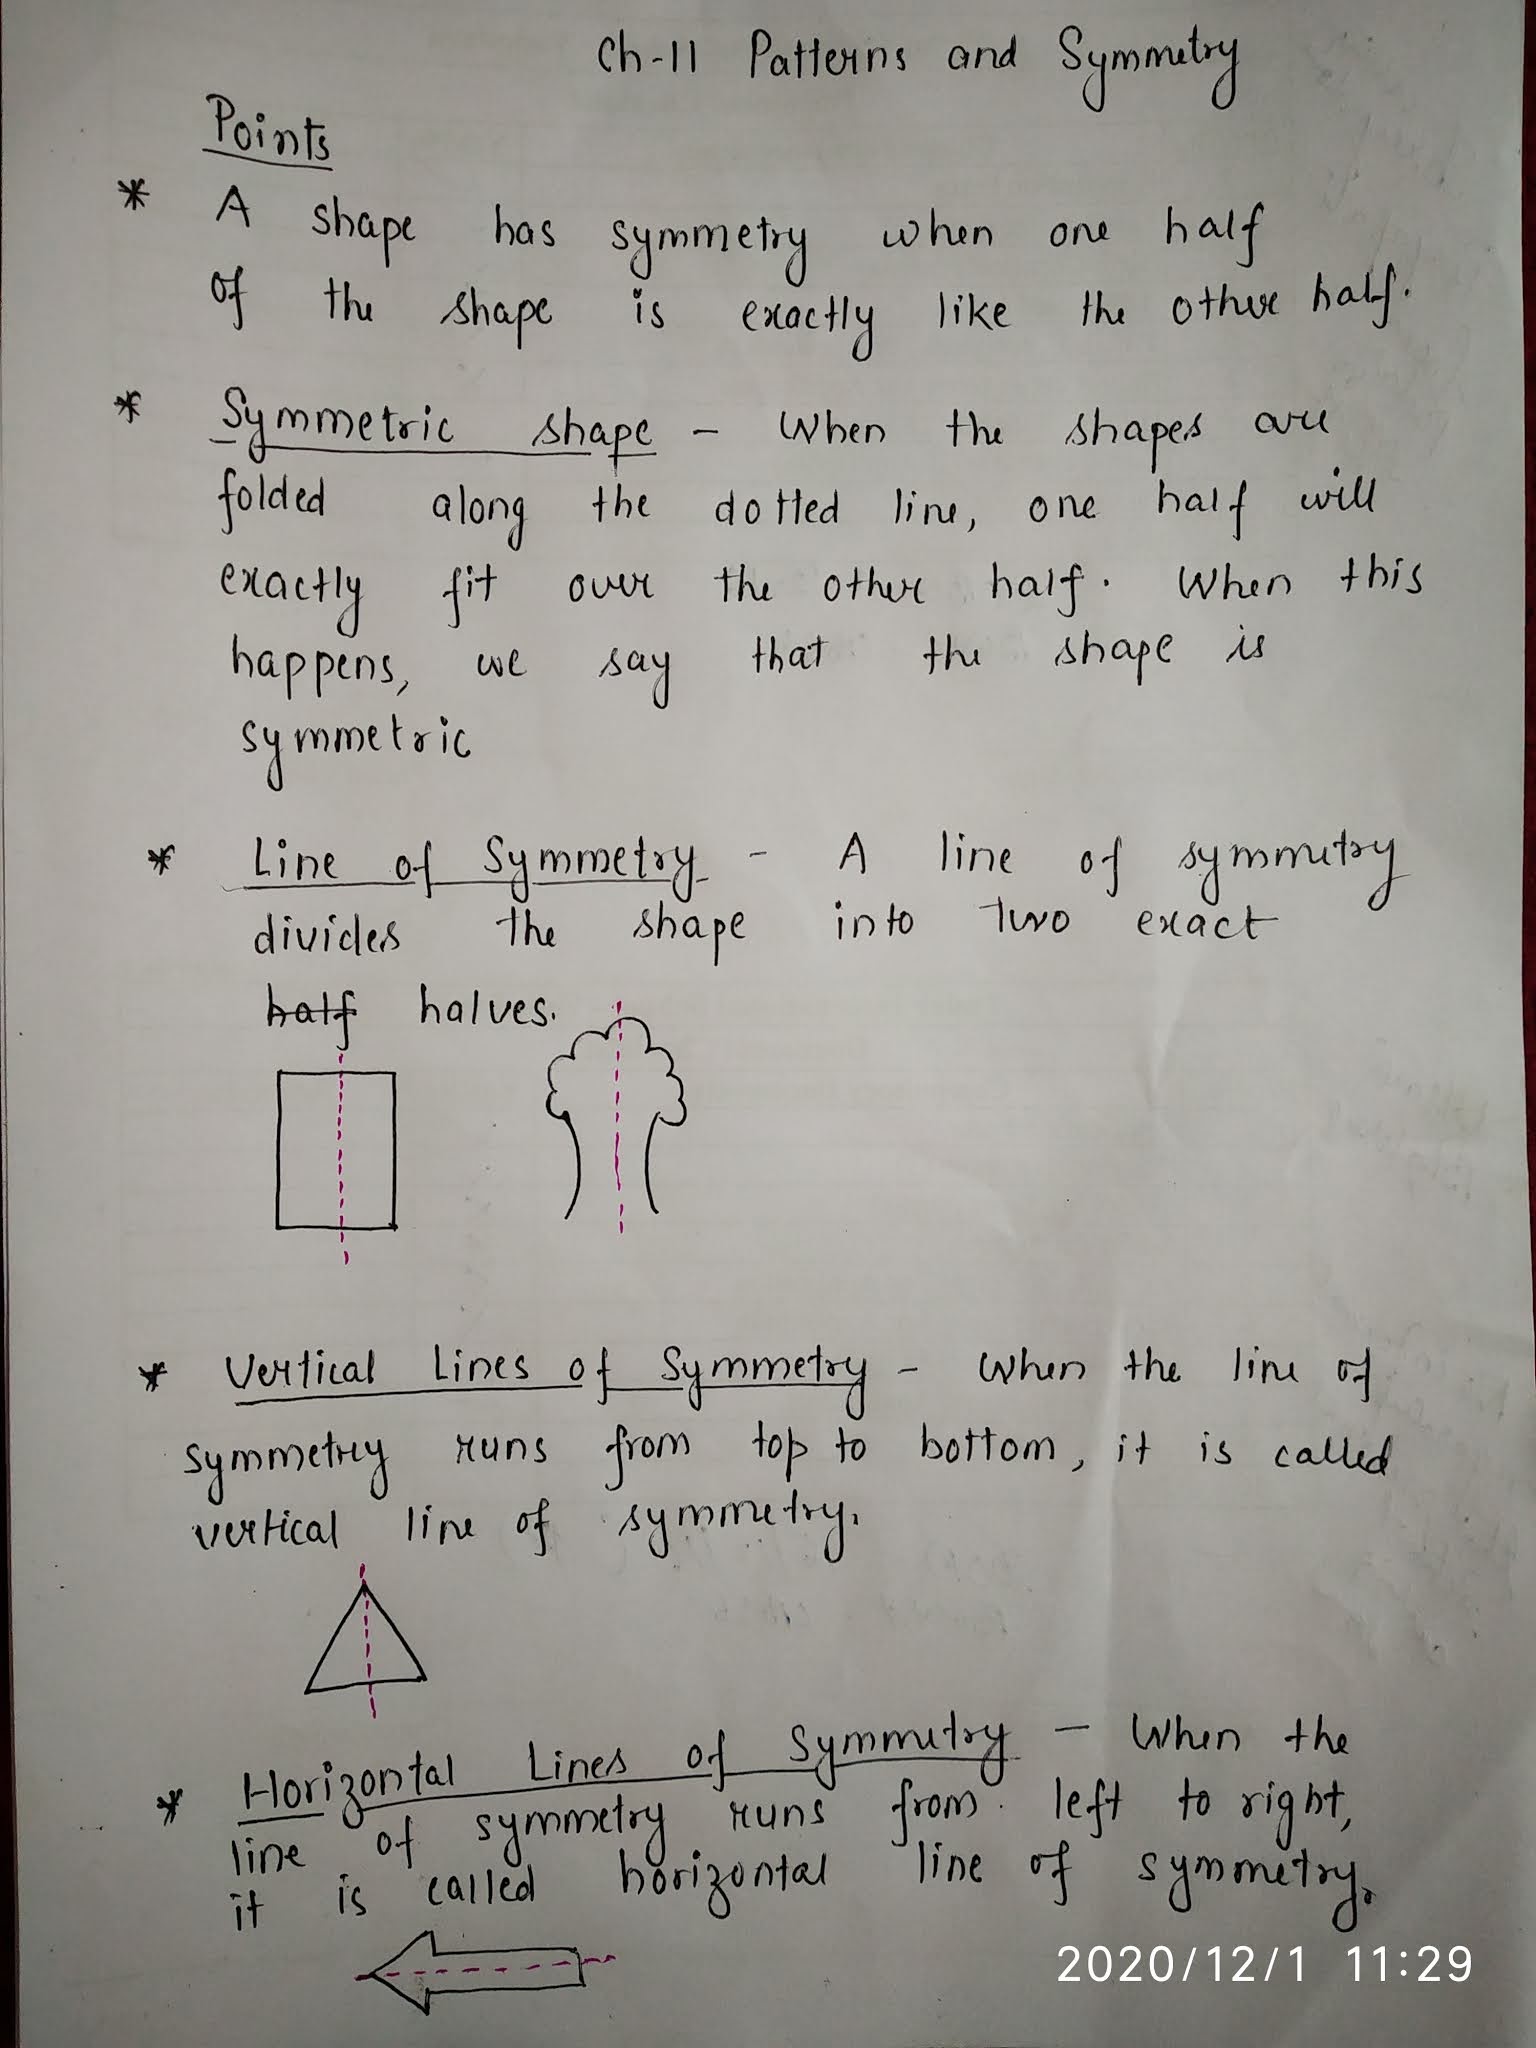 Ch-11 Patterns and Symmetry
Points
* A shape has symmetry when one half
of the shape is exactly like the other half.
* Symmetric shape - When the shapes are
folded along the dotted line, one half will
exactly fit over the other half. When this
happens, we say that the shape is
symmetric
* Line of Symmetry - A line of symmetry
divides the shape into two exact
half halves.
* Vertical Lines of Symmetry - When the line of
symmetry runs from top to bottom, it is called
vertical line of symmetry.
* Horizontal Lines of Symmetry - When the
line of symmetry runs from left to right,
it is called horizontal line of symmetry.
2020/12/1 11:29